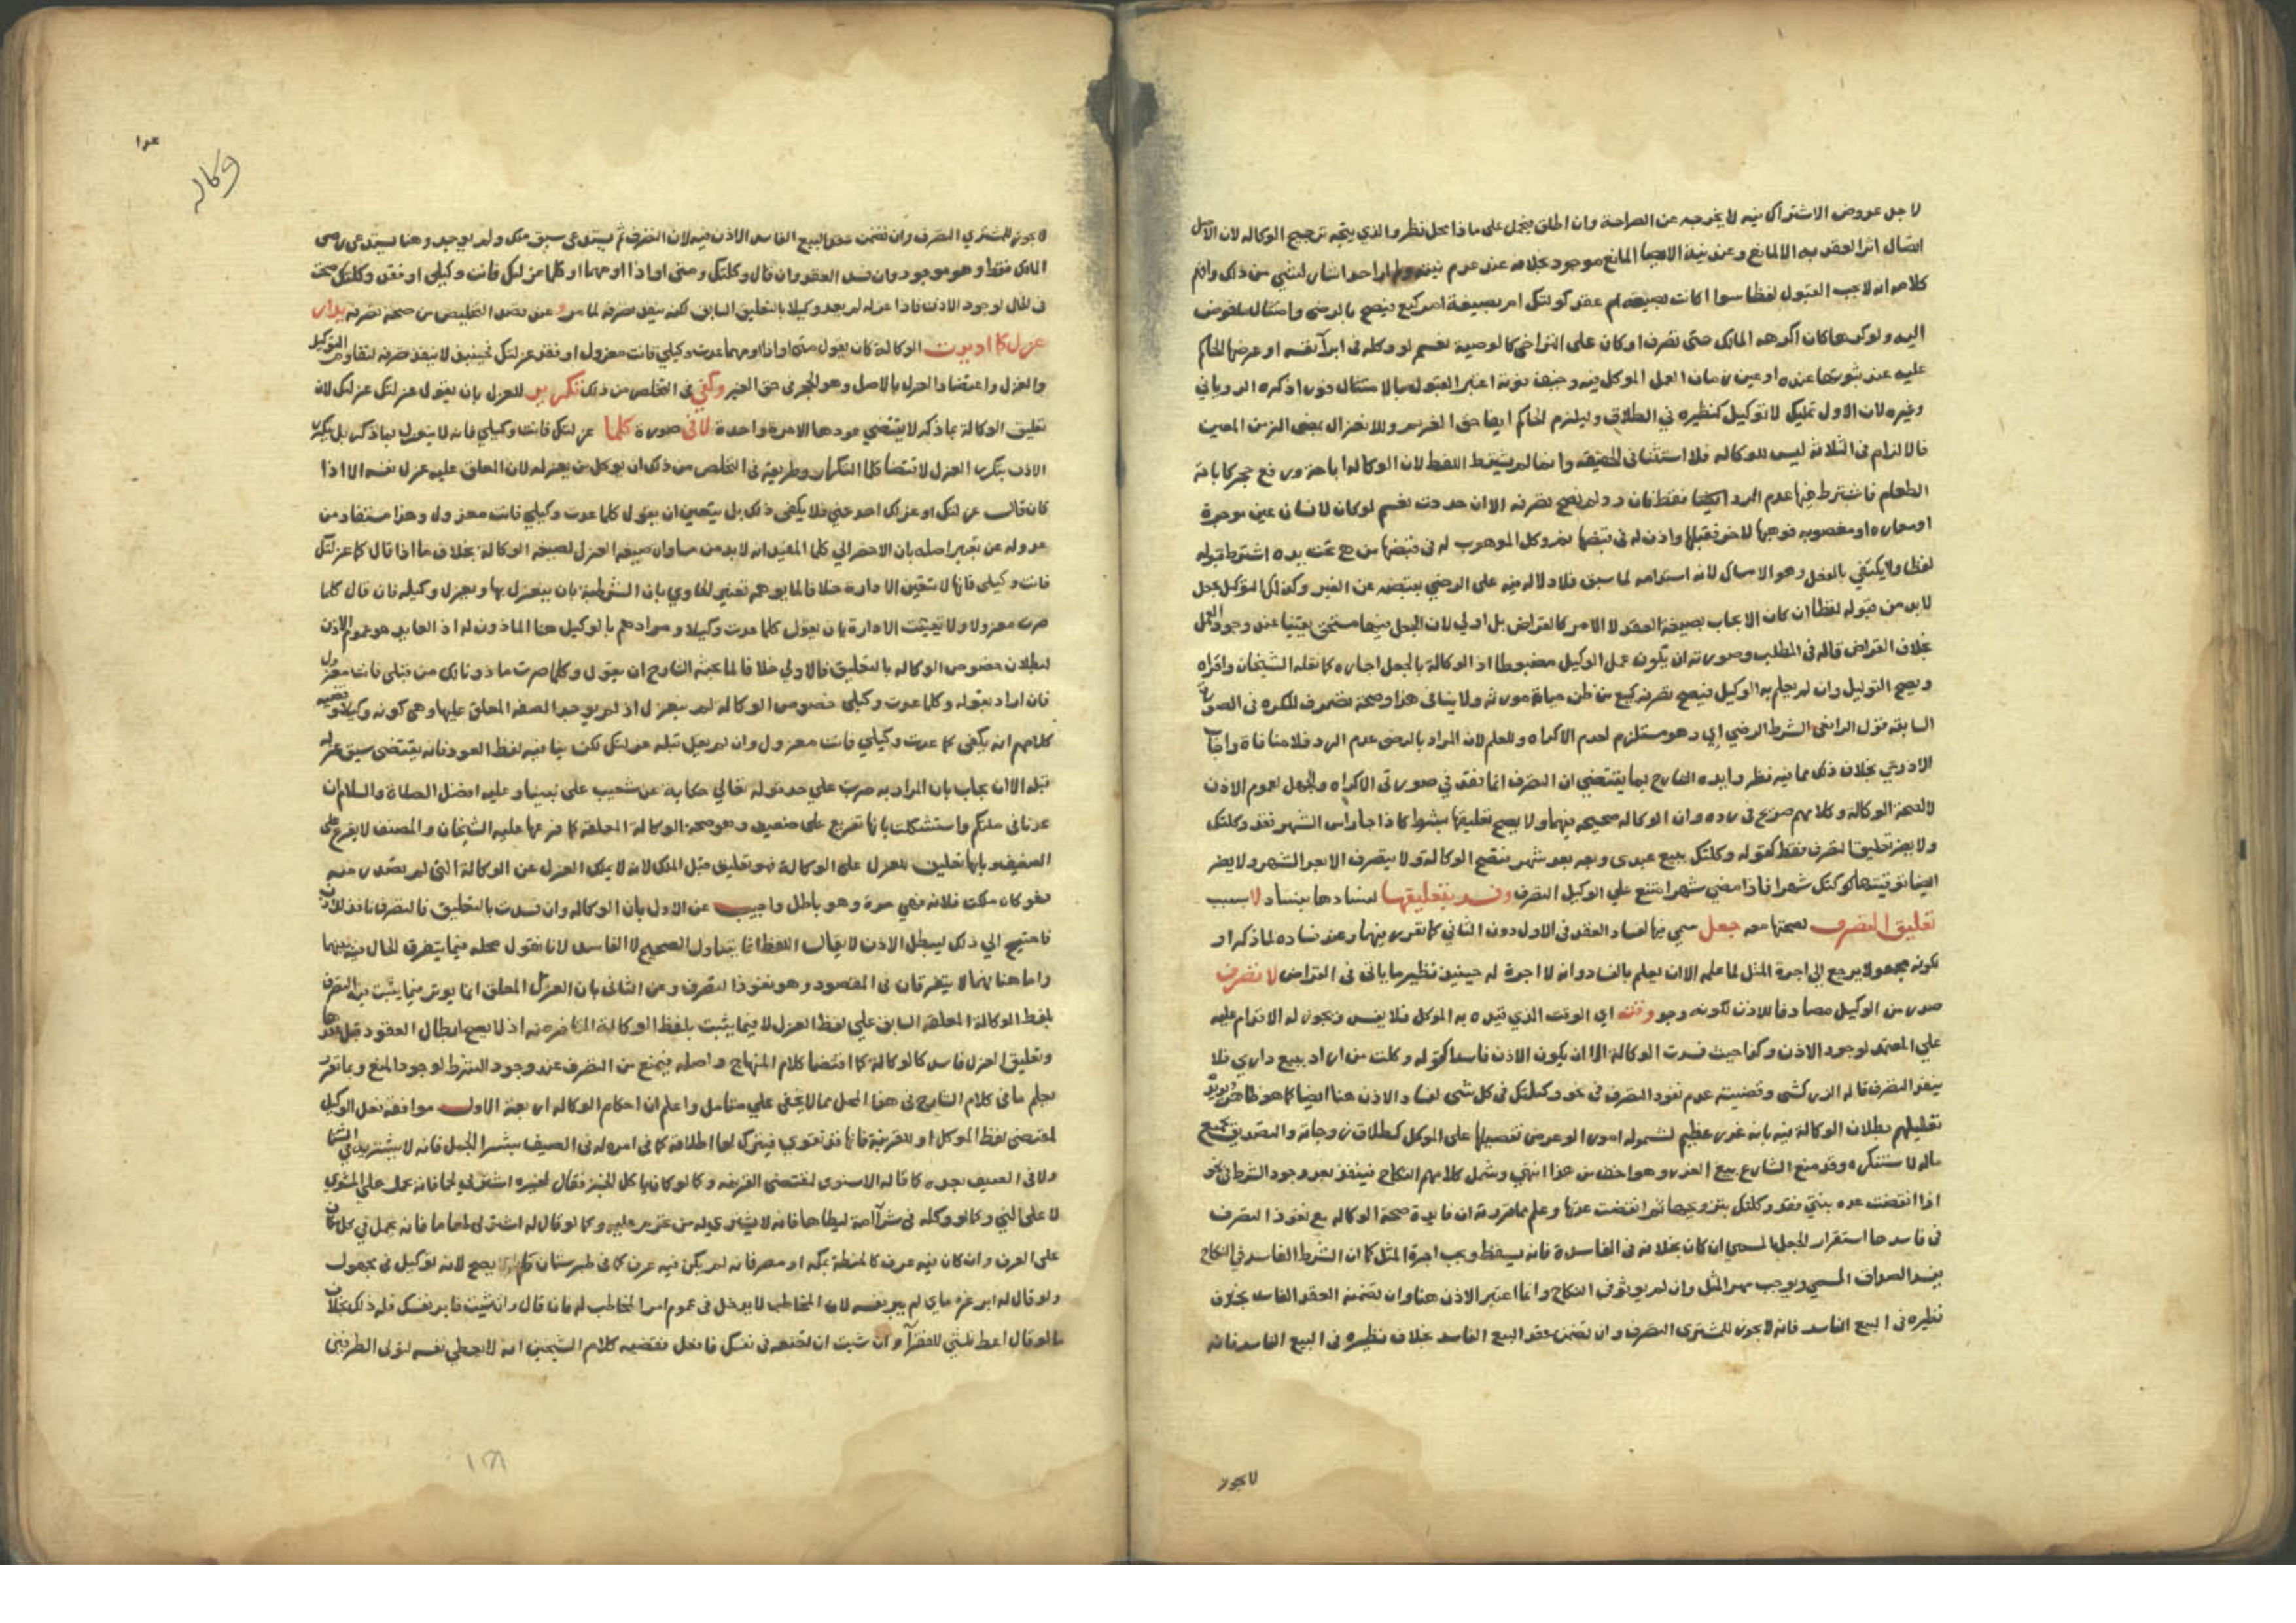 لاجل عروض الاشتراك فيه لا يخرجه عن الصراحة وان اطلق فيحمل على ماذا محل نظر والذي يتجه ترجيح الوكاله لان الاصل
اتصال اثر العقد به الا لمانع وعند نية المانع موجود بخلافه عند عدم احد اشار لشي من ذلك وافهم
كلامه انه لا يجب القبول لفظا سوا اكانت بصيغة ام عقد كوكلتك امر بصيغة امر كبع فيصح بالرضى وامتثال ما فوض
اليه ولو كرهها كان اكرهه المالك حتى تصرف او كان على التراخى كالوصية نعم لو وكله فى ابرآ نفسه او عرضها الحاكم
عليه عند ثبوتها عنده او عين زمان العمل الموكل فيه وخيف فوته اعتبر القبول بالامتثال فورا ذكره الرويانى
وغيره لان الاول تمليك لا توكيل كنظيره في الطلاق وليلزم الحاكم ايفا حق الغريم وللانعزال بمضى الزمن المعين
فالالزام فى الثلاثة ليس للوكاله فلا استثنا فى الحقيقه وانما لم يشترط اللفظ لان الوكاله اباحة ورفع حجر كاباحة
الطعام فاشترط فيها عدم الرد فقط فان رد لم يصح تصرفه الا ان جددت نعم لو كان لانسان عين موجرة
او معاره او مغصوبه فوهبها لاخر فقبلها واذن له فى قبضها فوكل الموهوب له فى قبضها من هى تحت يده اشترط قبوله
لفظا ولا يكتفي بالفعل وهو الامساك لانه استدامه لما سبق فلا دلاله فيه على الرضي بقبضه عن الغير وكذا لو كان التوكيل بجعل
لا بد من قبوله لفظا ان كان الايجاب بصيغة العقد لا الامر كالقراض بل اولي لان الجعل فيها مستحق يقينا عند وجود العمل
بخلاف القراض قاله فى المطلب وصورته ان يكون عمل الوكيل مضبوطا اذ الوكالة بالجعل اجاره كما نقله الشيخان واقراه
ويصح التوكيل وان لم يعلم به الوكيل فيصح تصرفه كبيع من ظن حياة مورثه ولا ينافى هذا وصحة تصرف المكره فى الصورة
السابقه قول الرافعى الشرط الرضي اي وهو مستلزم لعدم الاكراه وللعلم لان المراد بالرضى عدم الرد فلا منافاة واجاب
الاذرعي بخلاف ذلك مما فيه نظر وايده الشارح بما يقتضي ان التصرف انما نفذ في صورتى الاكراه والجهل لعموم الاذن
لا لصحة الوكالة وكلامهم صريح فى رده وان الوكاله صحيحه فيهما ولا يصح تعليقها بشرط كاذا جا راس الشهر فقد وكلتك
ولا يضر تعليق التصرف فقط كقوله وكلتك ببيع عبدى وبعه بعد شهر فتصح الوكالة ولا يتصرف الا بعد الشهر ولا يضر
ايضا توقيتها كوكلتك شهرا فاذا مضي شهرا امتنع علي الوكيل التصرف وفسد بتعليقها لفسادها بفساد لا بسبب
تعليق التصرف لصحتها معه جعل سمي فيها لفساد العقد فى الاول دون الثاني كما تقرر فيهما وعند فساده لما ذكر او
لكونه مجهولا يرجع الى اجرة المثل لما عمله الا ان يعلم بالفساد وانه لا اجرة له حينئذ نظير ما ياتى فى القراض لا تصرف
صدر من الوكيل مصادفا للاذن لكونه وجد وقته اي الوقت الذي قيده به الموكل فلا يفسد ويجوز له الاقدام عليه
علي المعتمد لوجود الاذن وكذا حيث فسدت الوكالة الا ان يكون الاذن فاسدا كقوله وكلت من اراد ببيع داري فلا
ينفذ التصرف قاله الزركشى وقضيته عدم نفوذ التصرف فى نحو وكلتك فى كل شى لفساد الاذن هنا ايضا كما هو ظاهر ويويده
تعليلهم بطلان الوكالة فيه بانه غرر عظيم لشموله امورا لو عرض تفصيلها على الموكل كطلاق زوجاته والتصدق بجميع
ماله لاستنكره وقد منع الشارع بيع الغرر وهو اخف من هذا انتهى وشمل كلامهم النكاح فينفذ بعد وجود الشرط فى نحو
اذا انقضت عده بنتى فقد وكلتك بتزويجها ثم انقضت عدتها وعلم مما تقرر ان فايدة صحة الوكاله مع نفوذ التصرف
فى فاسدها استقرار الجعل المسمي ان كان بخلافه فى الفاسدة فانه يسقط ويجب اجرة المثل كما ان الشرط الفاسد في النكاح
يفسد الصداق المسمي ويوجب مهر المثل وان لم يوثر فى النكاح وانما اعتبر الاذن هنا وان تضمنه العقد الفاسد بخلاف
نظيره فى البيع الفاسد فانه لا يجوز للمشترى التصرف وان تضمن عقد البيع الفاسد بخلاف نظيره فى البيع الفاسد فانه
لا يجوز
وكاله
لا يجوز للمشتري التصرف وان تضمن عقد البيع الفاسد الاذن فيه لان التصرف ثم يستدعى سبق ملك ولم يوجد وهنا يستدعى رضى
المالك فقط وهو موجود وان فسد العقد وان قال وكلتك ومتى او اذا او مهما او كلما عزلتك فانت وكيلى او فقد وكلتك صحت
فى الحال لوجود الاذن فاذا عزله لم يعد وكيلا بالتعليق السابق لكنه ينفذ تصرفه لما مر وعند قصد التخليص من صحة تصرفه يدار
عزل كما اديرت الوكالة كان يقول متى او اذا او مهما عدت وكيلي فانت معزول او فقد عزلتك فحينئذ لا ينفذ تصرفه لتقاوم التوكيل
والعزل واعتضاد العزل بالاصل وهو الحجر فى حق الغير وكفي فى التخلص من ذلك تكرير للعزل بان يقول عزلتك عزلتك لان
تعليق الوكالة بما ذكر لا يقتضي عودها الا مرة واحدة لا فى صورة كلما عزلتك فانت وكيلي فانه لا ينعزل بما ذكر بل يتكرر
الاذن بتكرر العزل لاقتضا كلما التكرار وطريقه فى التخلص من ذلك ان يوكل من يعزله لان المعلق عليه عزل نفسه الا اذا
كان قال عزلتك او عزلك احد عني فلا يكفى ذلك بل يتعين ان يقول كلما عدت وكيلي فانت معزول وهذا مستفاد من
عدوله عن تعبير اصله بان الاحضر الى كلما المفيد انه لا بد من مساواة صيغة العزل لصيغة الوكالة بخلاف ما اذا قال كلما عزلتك
فانت وكيلى فانها لا تتعين الادارة خلافا لما يوهمه تعبير الحاوي بان الشرطية بان ينعزل بها ويعزل وكيله فان قال كلما
صرت معزولا ولا تعينت الادارة بان يقول كلما عدت وكيلا ومرادهم بالوكيل هنا الماذون له اذ العايد هو عموم الاذن
لبطلان خصوص الوكاله بالتعليق فالاولي خلافا لما بحثه الشارح ان يقول وكلما صرت ماذونا لك من قبلى فانت معزول
فان اراد بقوله وكلما عدت وكيلى خصوص الوكاله لم ينعزل اذ لم يوجد الصفه المعلق عليها وهى كونه وكيلا وقضيه
كلامهم انه يكفى كلما عدت وكيلي فانت معزول وان لم يقل قبله عزلتك لكن ينافيه لفظ العود فانه يقتضى سبق عزله
قبله الا ان يجاب بان المراد به صرت على حد قوله تعالي حكاية عن شعيب على نبينا وعليه افضل الصلاة والسلام ان
عدنا فى ملتكم واستشكلت بانها تفريع على ضعيف وهو صحة الوكالة المعلقة كما فرعها عليه الشيخان والمصنف لا يفرع على
الضعيف وبانها تعليق للعزل على الوكالة فهو تعليق قبل الملك لانه لا يملك العزل عن الوكالة التى لم تصدر منه
فهو كان ملكت فلانه فهي حرة وهو باطل واجيب عن الاول بان الوكاله وان فسدت بالتعليق فالتصرف نافذ للاذن
فاحتيج الي ذلك ليبطل الاذن لا يقال اللفظ انما يتناول الصحيح لا الفاسد لانا نقول محله فيما يتفرق الحال فيه بينهما
واما هنا فهما لا يتفرقان فى المقصود وهو نفوذ التصرف وعن الثانى بان العزل المعلق انما يوثر فيما يثبت فيه التصرف
بلفظ الوكالة المعلقه السابق علي لفظ العزل لا فيما يثبت بلفظ الوكالة المتاخر عنه اذ لا يصح ابطال العقود قبل عقدها
وتعليق العزل فاسد كالوكالة كما اقتضاه كلام المنهاج واصله فيمنع من التصرف عند وجود الشرط لوجود المنع وبما تقرر
يعلم ما فى كلام الشارح فى هذا المحل مما لا يخفى علي متامل واعلم ان احكام الوكاله اربعة الاول موافقة فعل الوكيل
لمقتضى لفظ الموكل او للقرينة فانها قد تقوي فيترك لها اطلاقه كما فى امره له فى الصيف بشرا الجمد فانه لا يشتريه في الشتا
ولا فى الصيف بعده كما قاله الاسنوى لمقتضى القرينه وكما لو كان ياكل الخبز فقال لغيره اشتر لى لحما فانه يحمل على المشوي
لا على النيي وكما لو وكله فى شرآ امة ليطاها فانه لا يشتري له من تحرم عليه وكما لو قال له اشتر لى طعاما فانه يحمل في كل مكان
على العرف وان كان فيه عرف كالحنطة بمكه او مصر فانه لم يكن فيه عرف كما فى طبرستان لم يصح لانه توكيل فى مجهول
ولو قال له ابر غرماي لم يبر نفسه لان المخاطب لا يدخل فى عموم امر المخاطب له فان قال وان شيت فابر نفسك فله ذلك بخلاف
ما لو قال اعط ثلثي للفقرآ وان شيت ان تضعه فى نفسك فافعل فقضيه كلام الشيخين انه لا يعطي نفسه لتولى الطرفين